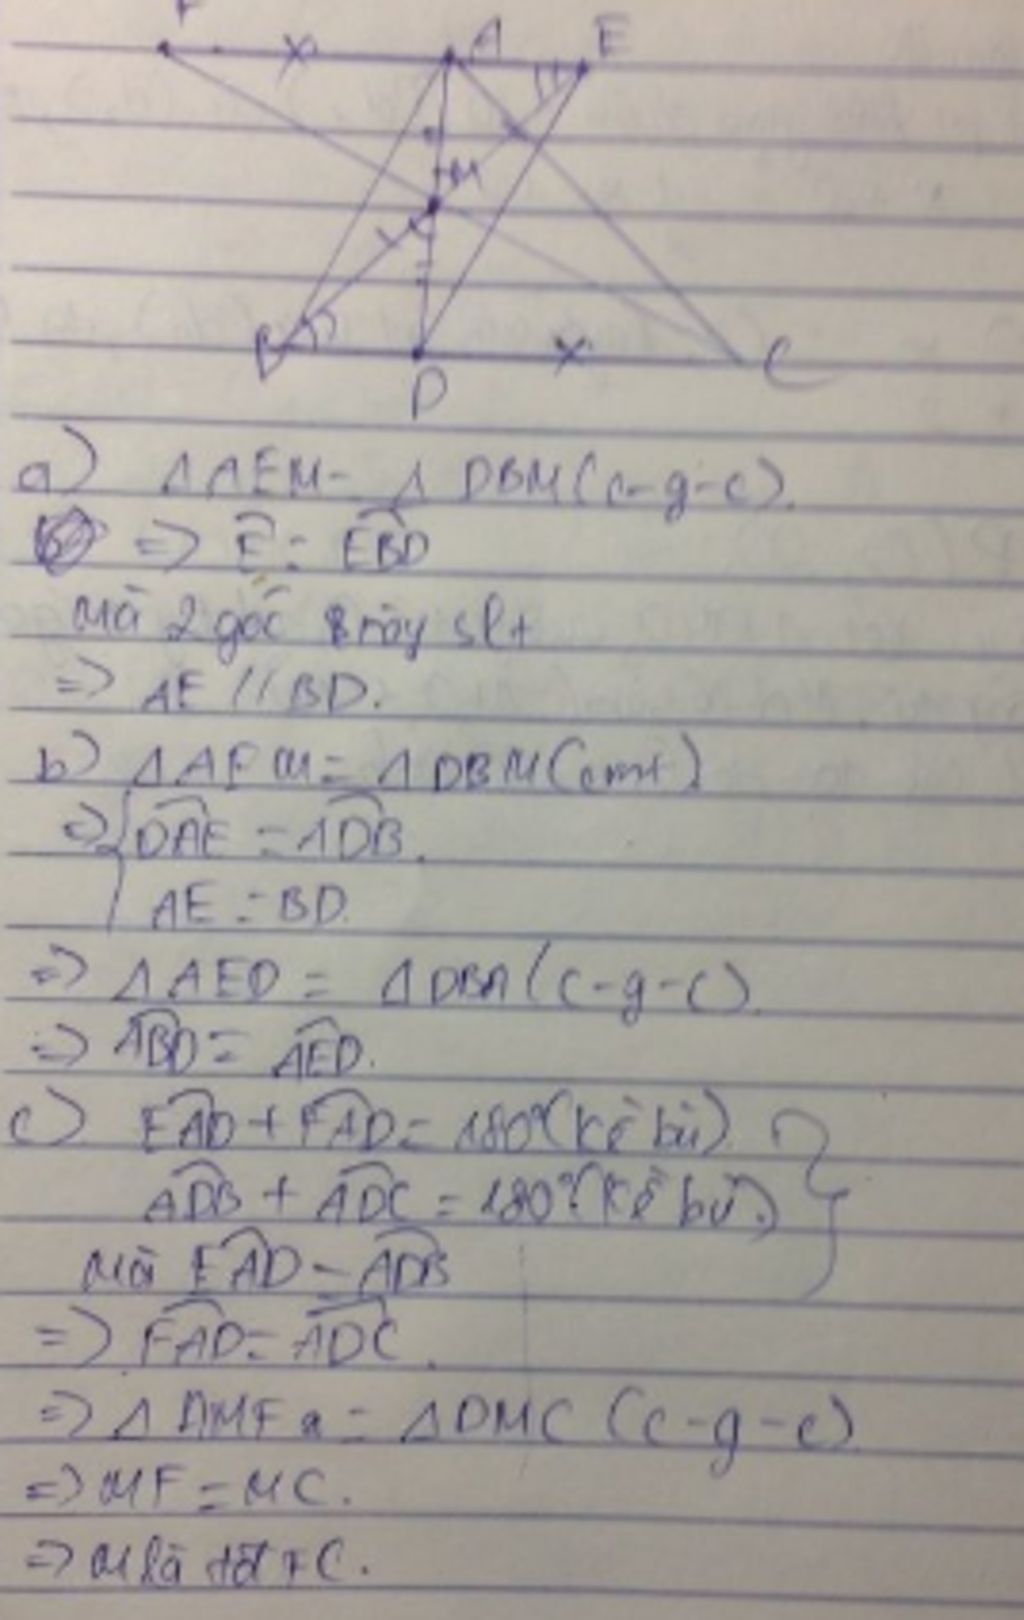 F A E
M
B D C
a) Δ AEM = Δ DBM (c-g-c).
=> Ê = EBD
Mà 2 góc này slt
=> AE // BD.
b) Δ AEM = Δ DBM (cmt)
=> { DAE = ADB.
AE = BD.
=> Δ AED = Δ DBA (c-g-c)
=> ABD = AED.
c) EAD + FAD = 180° (kề bù)
ADB + ADC = 180° (kề bù)
Mà EAD = ADB
=> FAD = ADC.
=> Δ AMF = Δ DMC (c-g-c)
=> MF = MC.
=> M là FC.